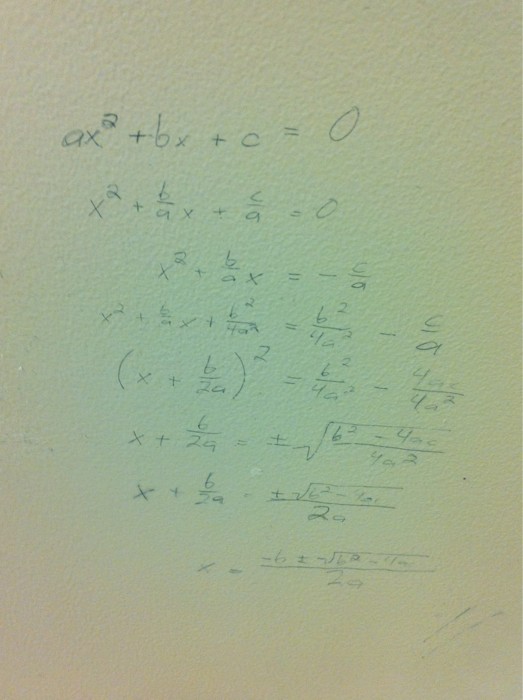 ax² + bx + c = 0
x² + b/a x + c/a = 0
x² + b/a x = - c/a
x² + b/a x + b²/4a² = b²/4a² - c/a
(x + b/2a)² = b²/4a² - 4ac/4a²
x + b/2a = ± √(b² - 4ac / 4a²)
x + b/2a = ± √(b² - 4ac) / 2a
x = -b ± √(b² - 4ac) / 2a